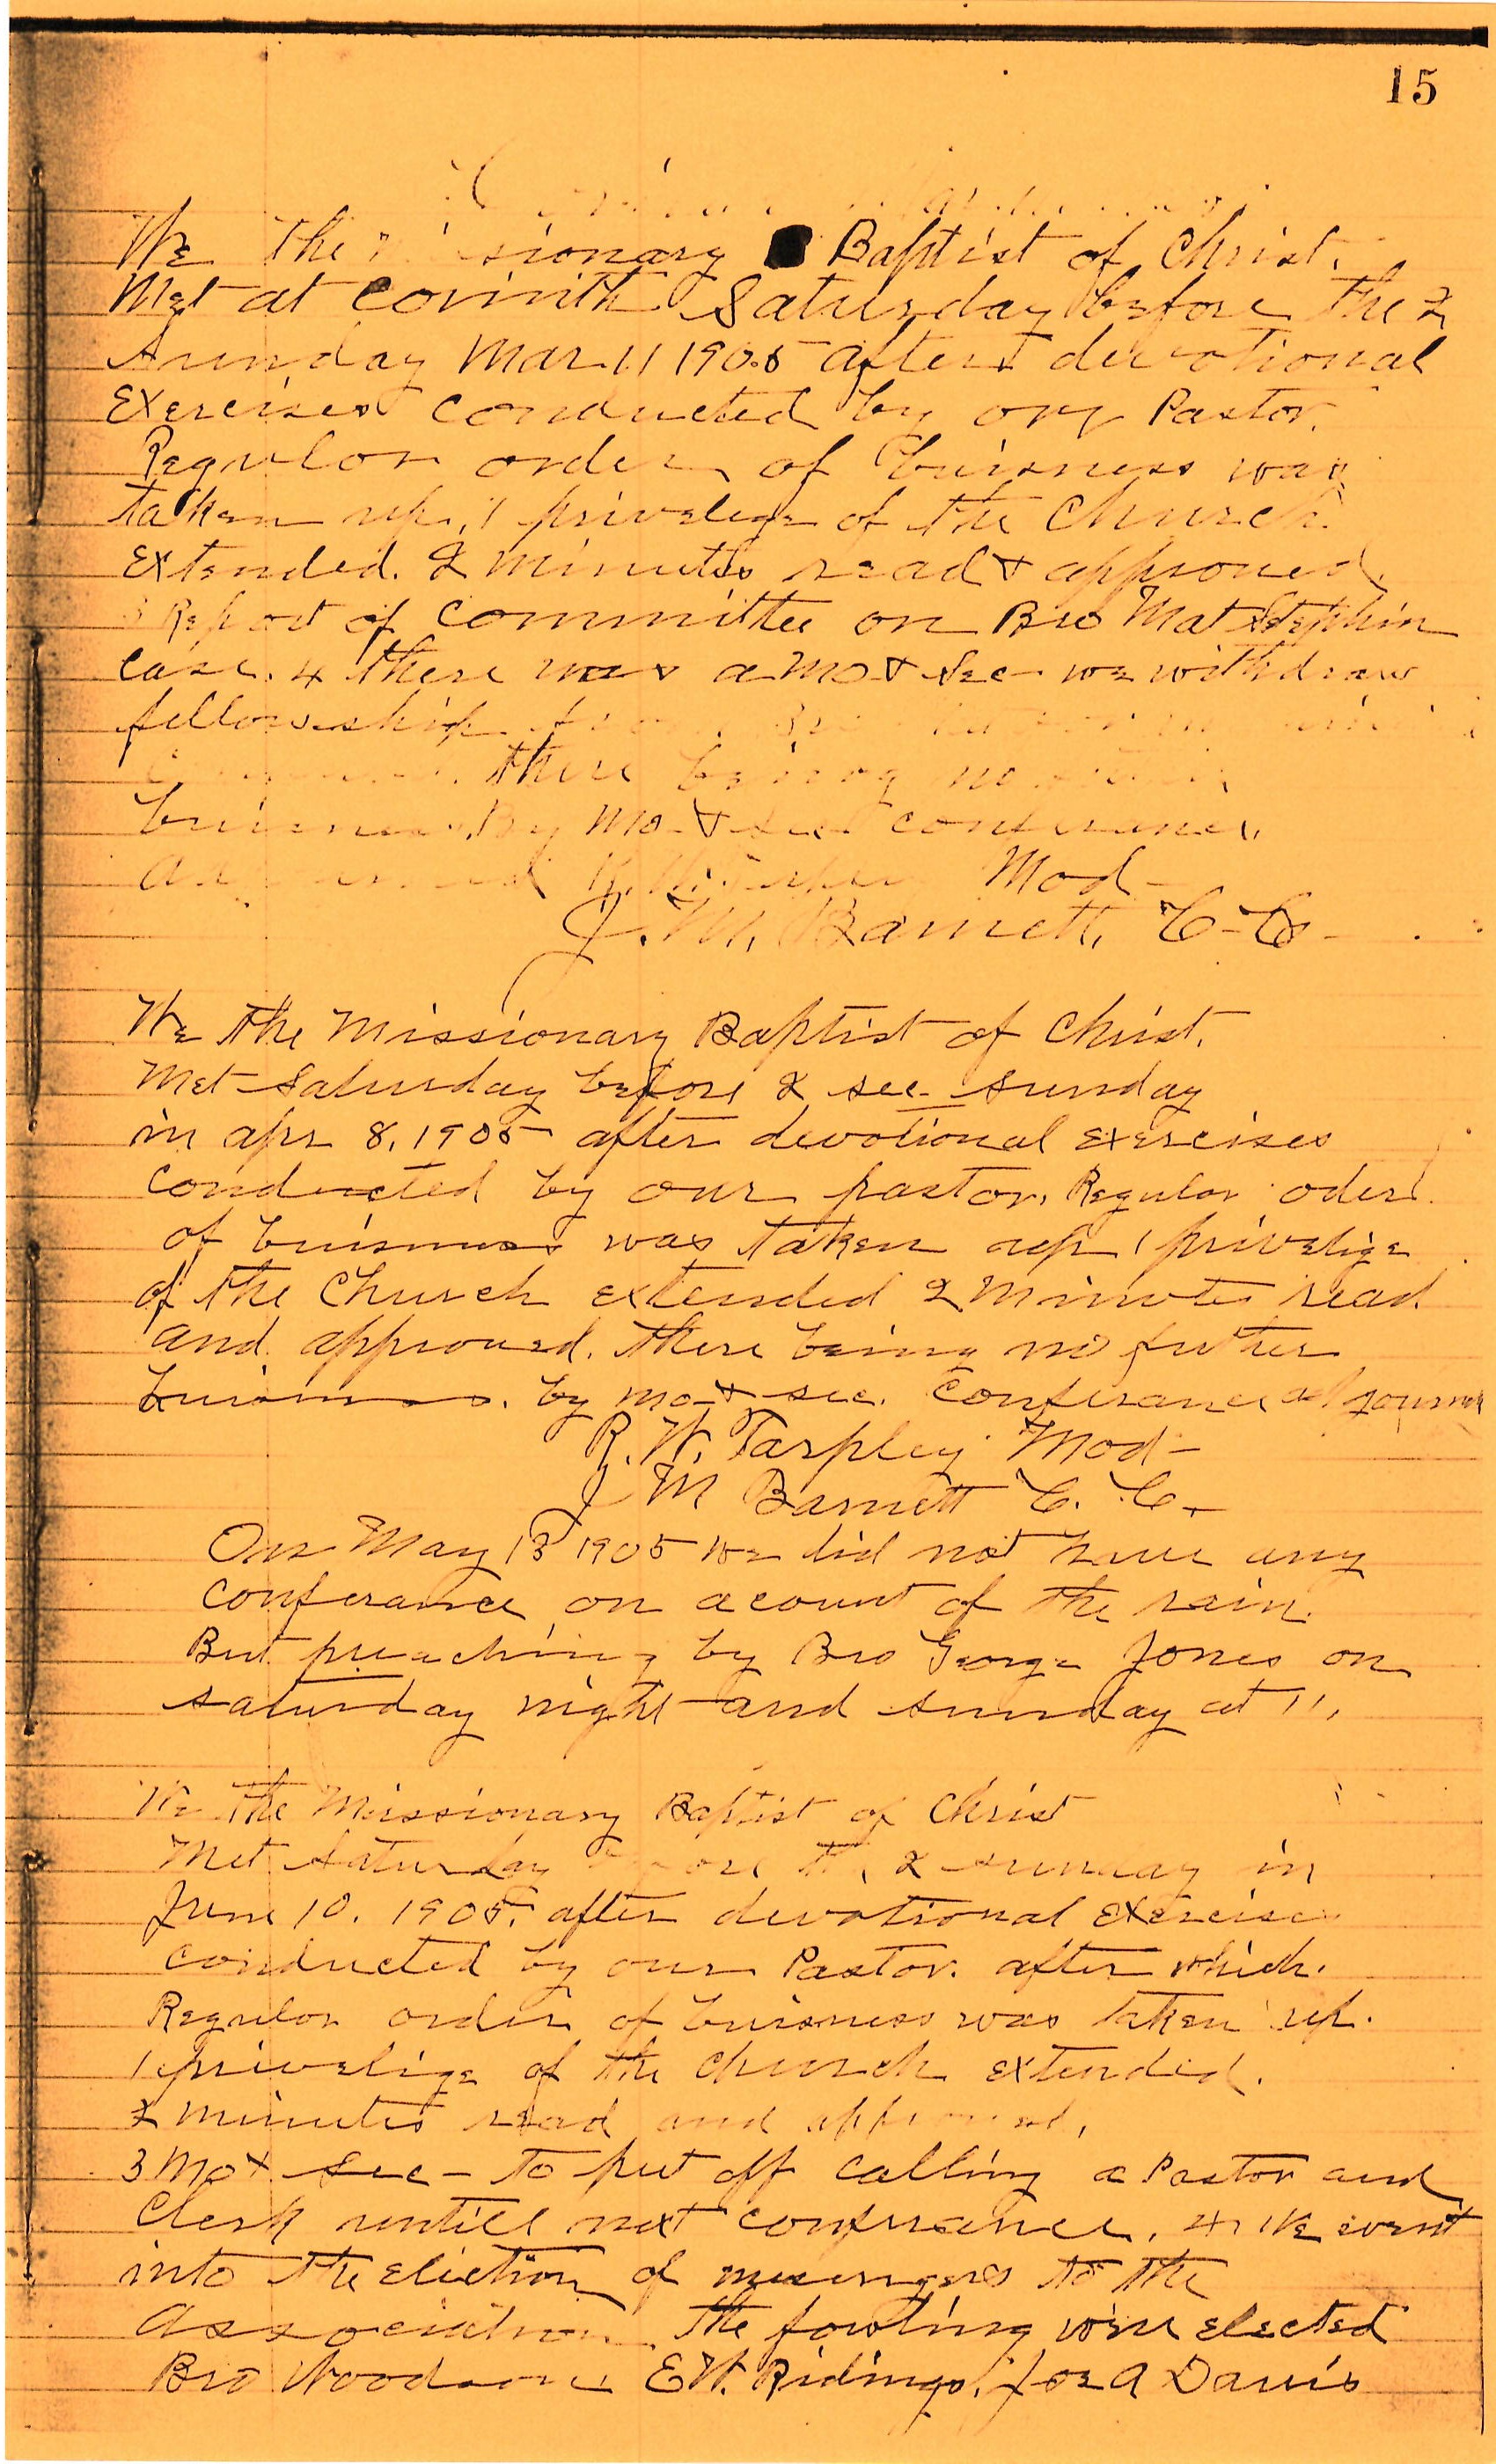 15
We the sionary Baptist of Christ.
Met at Corinith Saturday before the 2
Sunday Mar 11 1905 after devotional
Exercises conducted by our Pastor.
Regulor order of buisness was
taken up, 1 privelege of the Church
Extended. 2 minutes read & approved.
3 Report of committee on Bro Mat Stephin
case. 4 there was a mo & Sec we withdraw
fellowship
there being no
buisness. By mo & sec conferance,
Mod-
J. M. Barnett, C-C-
We the Missionary Baptist of Christ.
Met Saturday before 2 sec- sunday
in apr 8, 1905 after devotional exercises
conducted by our pastor. Regulor oder
of buisness was taken up 1 privelige
of the Church extended 2 minutes read
and approved. there being no futher
buisness. by mo & sec. Conferance adjourned
R. W. Tarpley Mod-
J M Barnett C. C.
On May 13 1905 we did not have any
conferance on acount of the rain.
But preaching by Bro George Jones on
saturday night and sunday at 11,
We the Missionary Baptist of Christ
Met Saturday 2 sunday in
June 10. 1905. after devotional exercises
conducted by our Pastor. after which.
Regulor order of buisness was taken up.
1 privelige of the church extended.
2 minutes read and approved.
3 Mo & Sec- to put off calling a Pastor and
Clerk untill next conferance. 4 We went
into the eliction of messengers to the
Association. The fowling were elected
Bro E W. Ridings, Joe A Davis